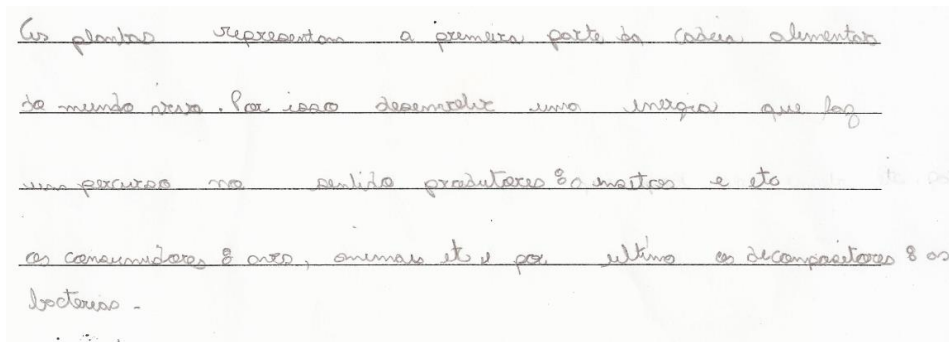 As plantas representam a premeira parte da cadeia alimentar
do mundo vivo. Por isso desenvolve uma energia que faz
um percurso no sentido produtores : e etc
os consumidores : aves, animais etc e por ultimo os decompositores : as
bacterias -